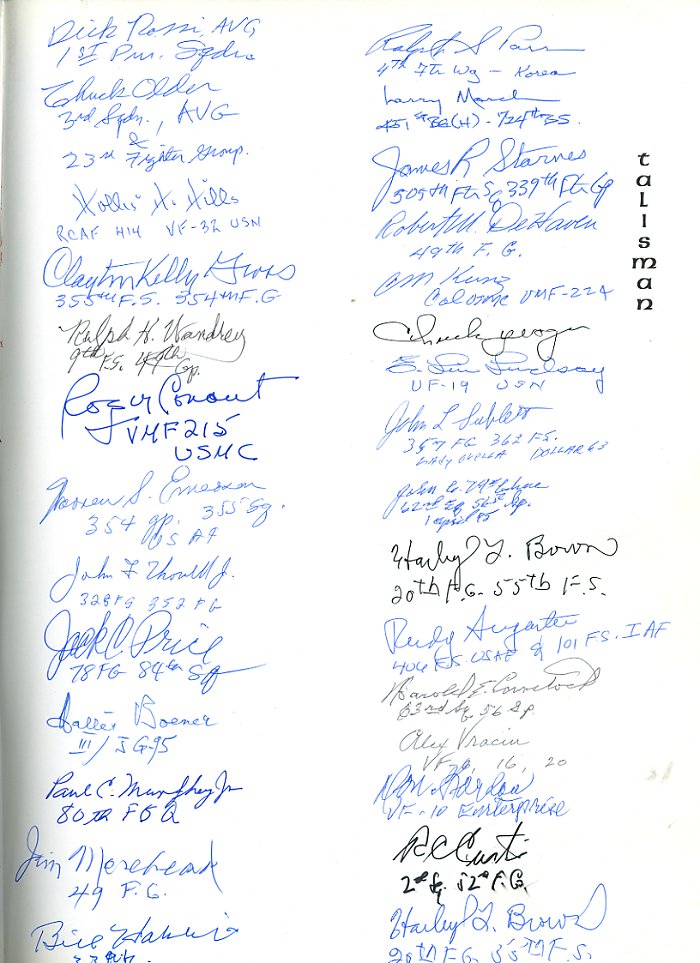 Dick Rossi, AVG
1st Pur. Sqdn.
Chuck Older
3rd Sqdn., AVG
&
23rd Fighter Group.
Hollis H. Hills
RCAF 414 VF-32 USN
Clayton Kelly Gross
355th F.S. 354th F.G
Ralph H. Wandrey
9th F.S. 49th Gp.
Roger Conant
VMF 215
USMC
Warren S. Emerson
354 gp. 355 Sq.
US AF
John F Thornell Jr.
328 FS 352 FG
Jack C. Price
78 FG 84th Sq
Boerner
III/JG-95
Paul C. Murphey Jr
80th
Jim Morehead
49 F.G.
Bill
Ralph S Parr
4th Ftr Wg - Korea
Larry
451st BG(H) - 724th BS.
James R Starnes
505th Ftr Sq 339th Ftr Gp
Robert M. DeHaven
49th F. G.
Kunz
VMF-224
Chuck Yeager
E. Lin Lindsay
VF-19 USN
John L Sublett
357 FG 362 FS.
LADY OVELLA
John
62nd Sq 56th Gp.
Harley L. Brown
20th F.G. 55th F.S.
Rudy Augarten
406 F.S. USAF & 101 FS. IAF
Harold E. Comstock
63rd Sq 56 Gp.
Alex Vraciu
VF 6, 16, 20
Gordon
VF-10 Enterprise
R C Curtis
2nd Sq. 52nd F.G.
Harley L. Brown
20th F.G. 55th F.S.
talisman